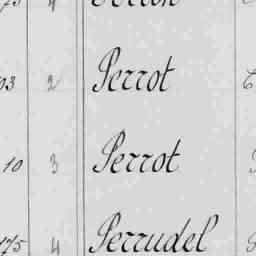 03 2 Perrot
10 3 Perrot
175 4 Perrudel